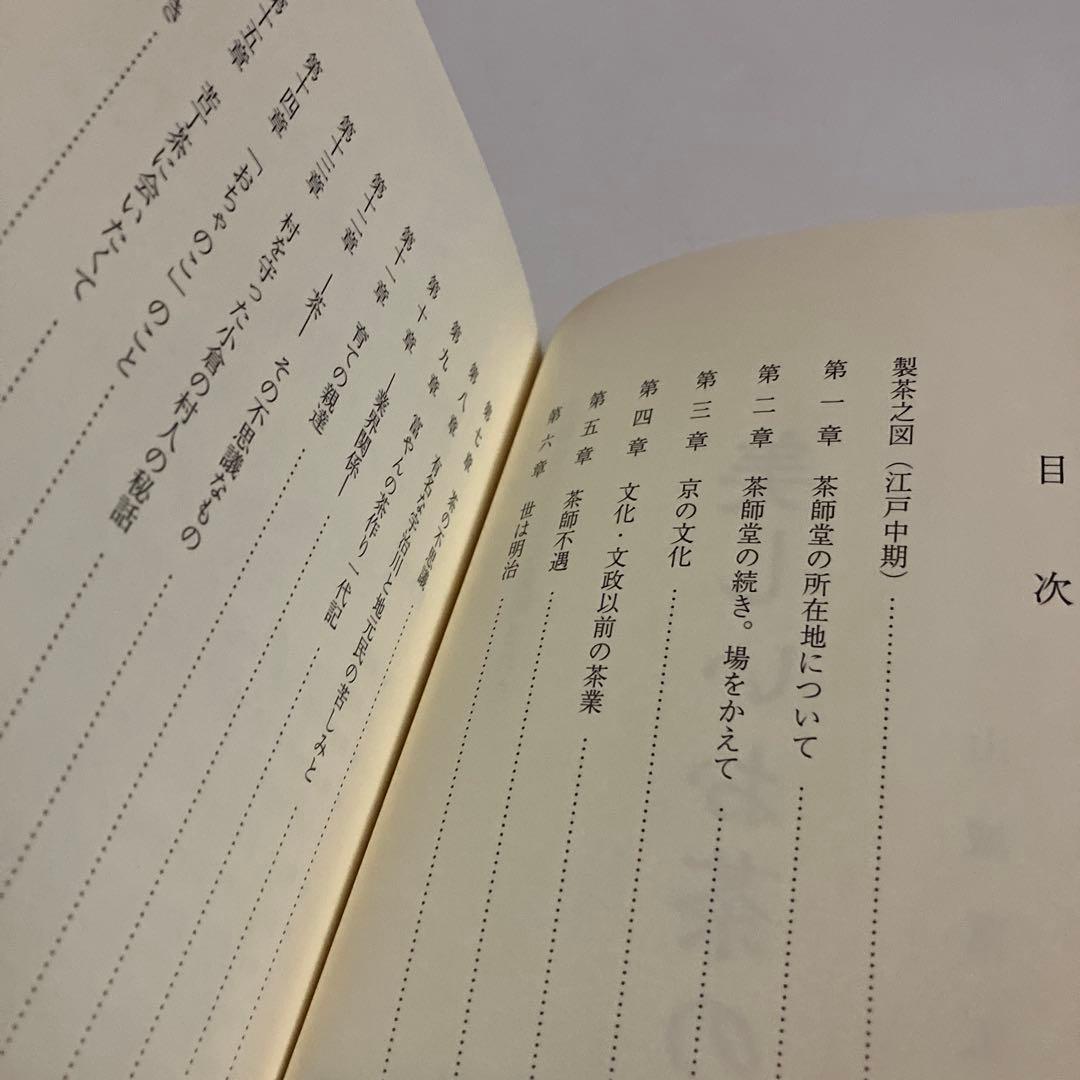 目次
製茶之図（江戸中期）
第一章 茶師堂の所在地について
第二章 茶師堂の続き。場をかえて
第三章 京の文化
第四章 文化・文政以前の茶業
第五章 茶師不遇
第六章 世は明治
第七章 茶の不思議
第八章 有名な宇治川と地元民の苦しみと
第九章
第十章 ―業界関係―
第十一章 育ての親達
第十二章 ―茶― その不思議なもの
第十三章 村を守った小倉の村人の秘話
第十四章 「おちゃのこ」のこと
第十五章 苦丁茶に会いたくて
き